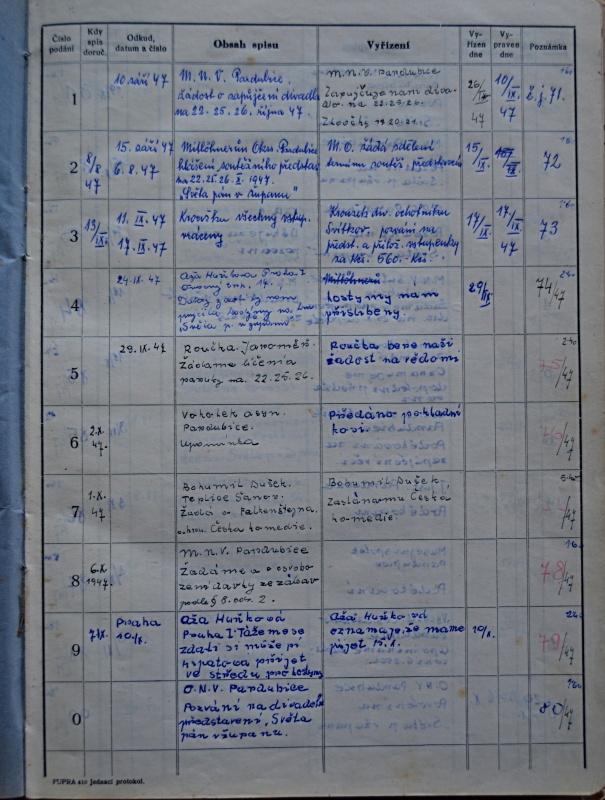 Číslo podání
Kdy spis doruč.
Odkud, datum a číslo
Obsah spisu
Vyřízení
Vyřízen dne
Vypraven dne
Poznámka
1
10 září 47
M.N.V. Pardubice.
Žádost o zapůjčení divadla
na 22. 25. 26. října 47.
M.N.V. Pardubice
Zapůjčuje nám diva-
dlo na 22.25.26.
Zkoušky 19 20.21.
26/IX 47
10/IX 47
č.j. 71.
2
8/8 47
15. září 47
6.8.47
Okres. Pardubice
hlášení soutěžního představ.
na 22.25.26.X.1947.
„Světa pán v županu"
M.O. žádá sdělení
termínu soutěž. představení
15/IX
72
3
13/IX
11. IX. 47
17. IX. 47
všechny vstup.
vráceny
Kroužek div. ochotníků
Svítkov. pozvání na
předst. a přilož. vstupenky
za Kčs. 560.- Kčs.
17/IX
17/IX 47
73
4
24.IX.47
Aža Huňková Praha I
kostýmy nám
přislíbeny.
29/IX
74/47
5
29.IX.47
Roučka Jaroměř.
Žádáme líčení
paruky na. 22.25.26.
Roučka bere naši
žádost na vědomí
75/47
6
2.X. 47.
Vokolek a syn.
Pardubice.
Upomínka
Předáno pokladní
kovi.
/47
7
1.X. 47
Bohumil Dušek.
Teplice Šanov.
Žádá o Falkenštejna.
Česká komedie.
Bohumil Dušek,
Zaslána mu Česká
komedie.
/47
8
6.X 1947
M.N.V. Pardubice
Žádáme o osvobo-
zení dávky ze zábav
podle § 8. odst. 2.
78/47
9
7/IX
Praha
10./X.
Aža Huňková
Praha I. Tážeme se
zdali si může pí
přijet
ve středu pro kostymy
Aža Huňková
oznamuje, že máme
přijet 15.X.
10/X.
79/47
0
O.N.V. Pardubice
Pozvání na divadelní
představení, Světa
pán v županu.
80/47
PUPRA 410 jednací protokol.